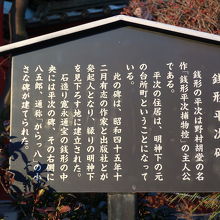 銭形平次碑
銭形の平次は野村胡堂の名
作『銭形平次捕物控』の主人公
である。
平次の住居は、明神下の元
の台所町ということになって
いる。
此の碑は、昭和四十五年十
二月有志の作家と出版社とが
発起人となり、縁りの明神下
を見下ろす地に建立された。
石造り寛永通宝銭形の中
央には平次の碑、その右側に
八五郎、通称「がらっ八」の小
さな碑が建てられた。